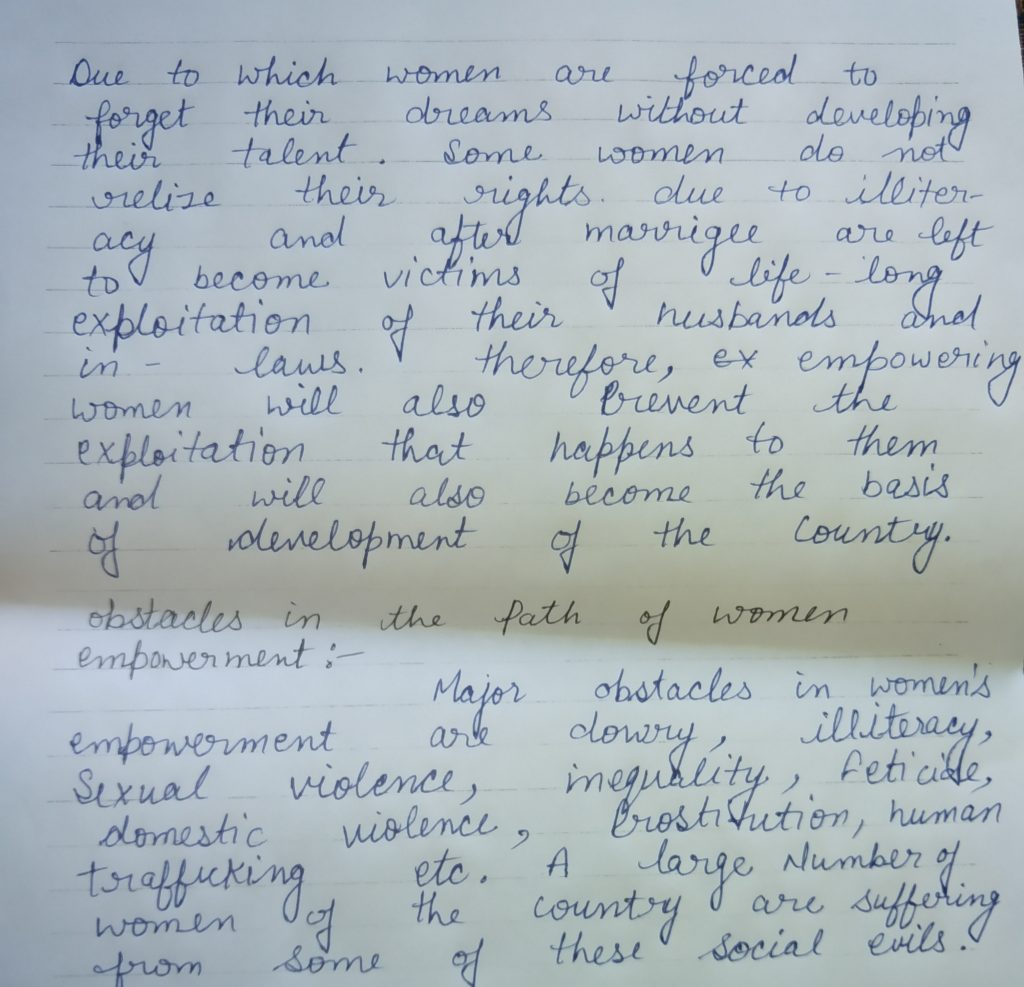 Due to which women are forced to
forget their dreams without developing
their talent. Some women do not
relize their rights. due to illiter-
acy and after marrigee are left
to become victims of life-long
exploitation of their husbands and
in- laws. therefore, ex empowering
women will also Prevent the
exploitation that happens to them
and will also become the basis
of development of the country.
obstacles in the Path of women
empowerment :-
Major obstacles in women's
empowerment are dowry, illiteracy,
Sexual violence, inequality, feticide,
domestic violence, Prostitution, human
trafficking etc. A large Number of
women of the country are suffering
from some of these social evils.